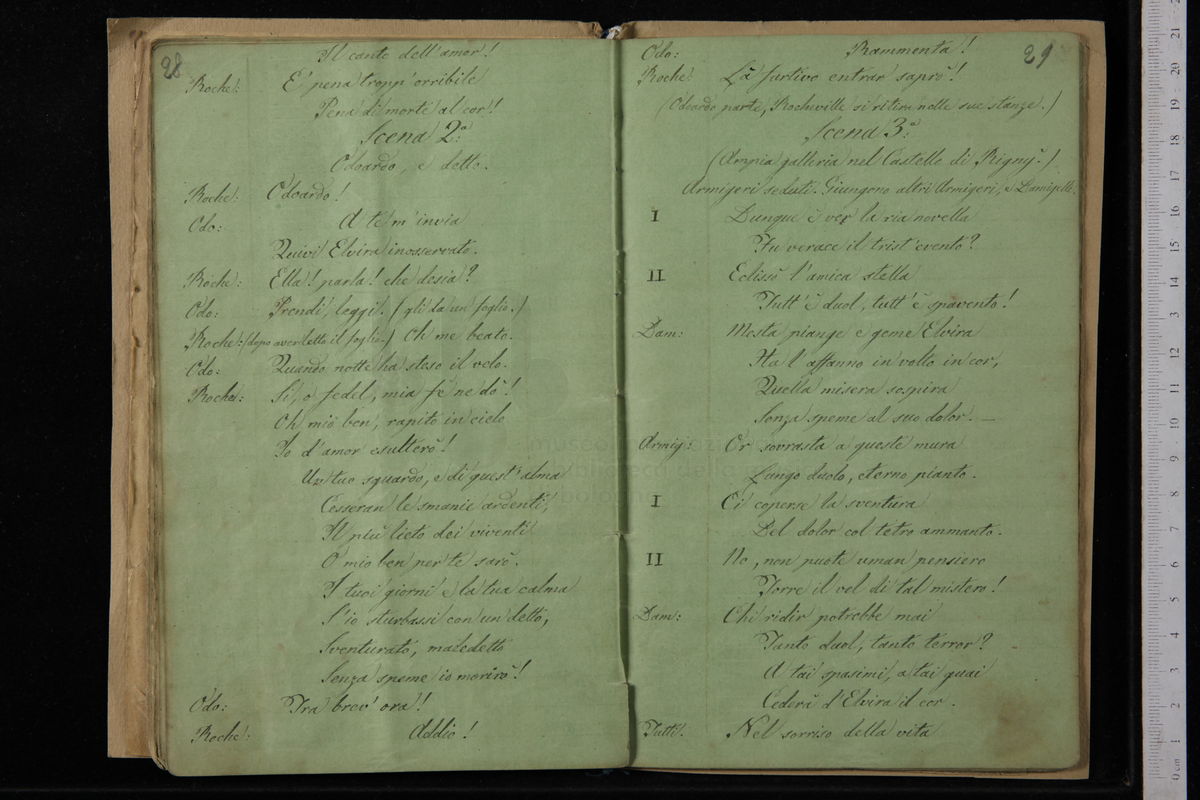 28
Il canto dell'amor!
Roche: E' pena tropp'orribile
Pena di morte al cor!
Scena 2.a
Odoardo, e detto.
Roche: Odoardo!
Odo: A te m'invia
Quivi Elvira inosservato.
Roche: Ella! parla! che desia?
Odo: Prendi, leggi. (gli da un foglio.)
Roche: (dopo aver letto il foglio.) Oh me beato.
Odo: Quando notte ha steso il velo.
Roche: Sì, o fedel, mia fè ne dò!
Oh mio ben, rapito in cielo
Io d'amor esulterò!
Un tuo sguardo, e di quest'alma
Cesseran le smanie ardenti,
Il più lieto dei viventi
O mio ben per te sarò.
I tuoi giorni e la tua calma
S'io sturbassi con un detto,
Sventurato, maledetto
Senza speme io morirò!
Odo: Tra brev'ora!
Roche: Addio!
29
Odo: Rammenta!
Roche: Là furtivo entrar saprò!
(Odoardo parte, Rocheville si ritira nelle sue stanze.)
Scena 3.a
(Ampia galleria nel Castello di Rigny.)
Armigeri seduti. Giungono altri Armigeri, e Damigelle.
I Dunque è ver la ria novella
Fu verace il trist'evento?
II Eclissò l'amica stella
Tutt'è duol, tutt'è spavento!
Dam: Mesta piange e geme Elvira
Ha l'affanno in volto in cor,
Quella misera sospira
Senza speme al suo dolor. —
Armig: Or sovrasta a queste mura
Lungo duolo, eterno pianto.
I Ci coperse la sventura
Del dolor col tetro ammanto.
II No, non puote uman pensiero
Torre il vel di tal mistero!
Dam: Chi ridir potrebbe mai
Tanto duol, tanto terror?
A tai spasimi, a tai guai
Cederà d'Elvira il cor.
Tutti. Nel sorriso della vita